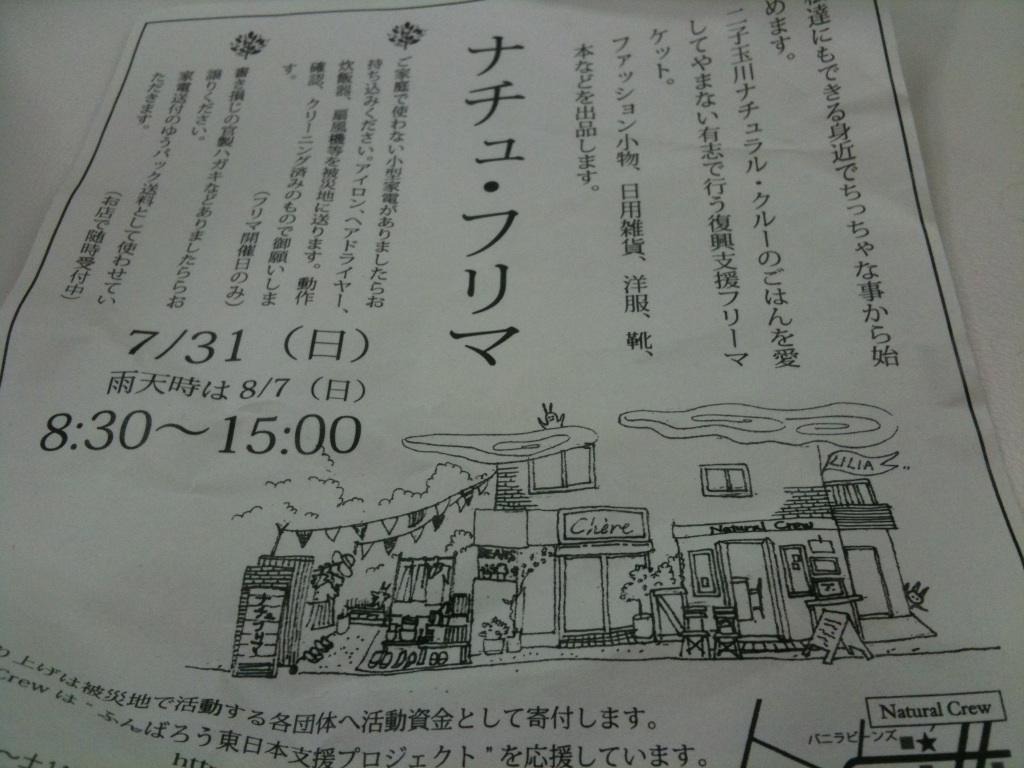 達にもできる身近でちっちゃな事から始
めます。
二子玉川ナチュラル・クルーのごはんを愛
してやまない有志で行う復興支援フリーマ
ケット。
ファッション小物、日用雑貨、洋服、靴、
本などを出品します。
ナチュ・フリマ
ご家庭で使わない小型家電がありましたらお
持ち込みください。アイロン、ヘアドライヤー、
炊飯器、扇風機等を被災地に送ります。動作
確認、クリーニング済みのもので御願いしま
す。
(フリマ開催日のみ)
書き損じの官製ハガキなどありましたらお
譲りください。
家電送付のゆうパック送料として使わせてい
ただきます。
(お店で随時受付中)
7/31(日)
雨天時は 8/7(日)
8:30〜15:00
LILIA
Chère
Natural Crew
BEANS
ナチュフリマ
り上げは被災地で活動する各団体へ活動資金として寄付します。
Crew は "ふんばろう東日本支援プロジェクト" を応援しています。
http
Natural Crew
バニラビーンズ